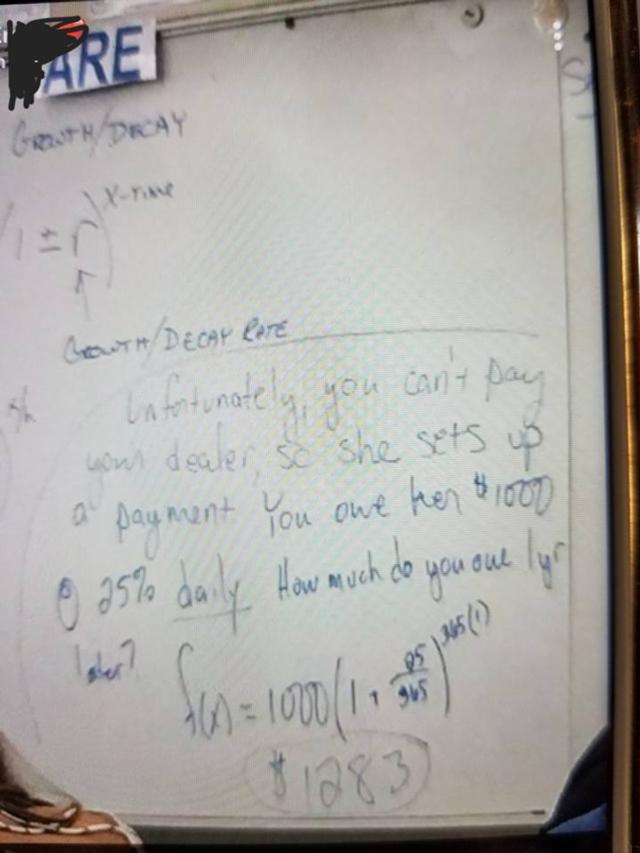 ARE
GROWTH/DECAY
(1 ± r)^x-time
GROWTH/DECAY RATE
Unfortunately, you can't pay
your dealer, so she sets up
a payment You owe her $1000
@ 25% daily How much do you owe 1yr
later?
f(x) = 1000(1 + .25/365)^365(1)
$1283